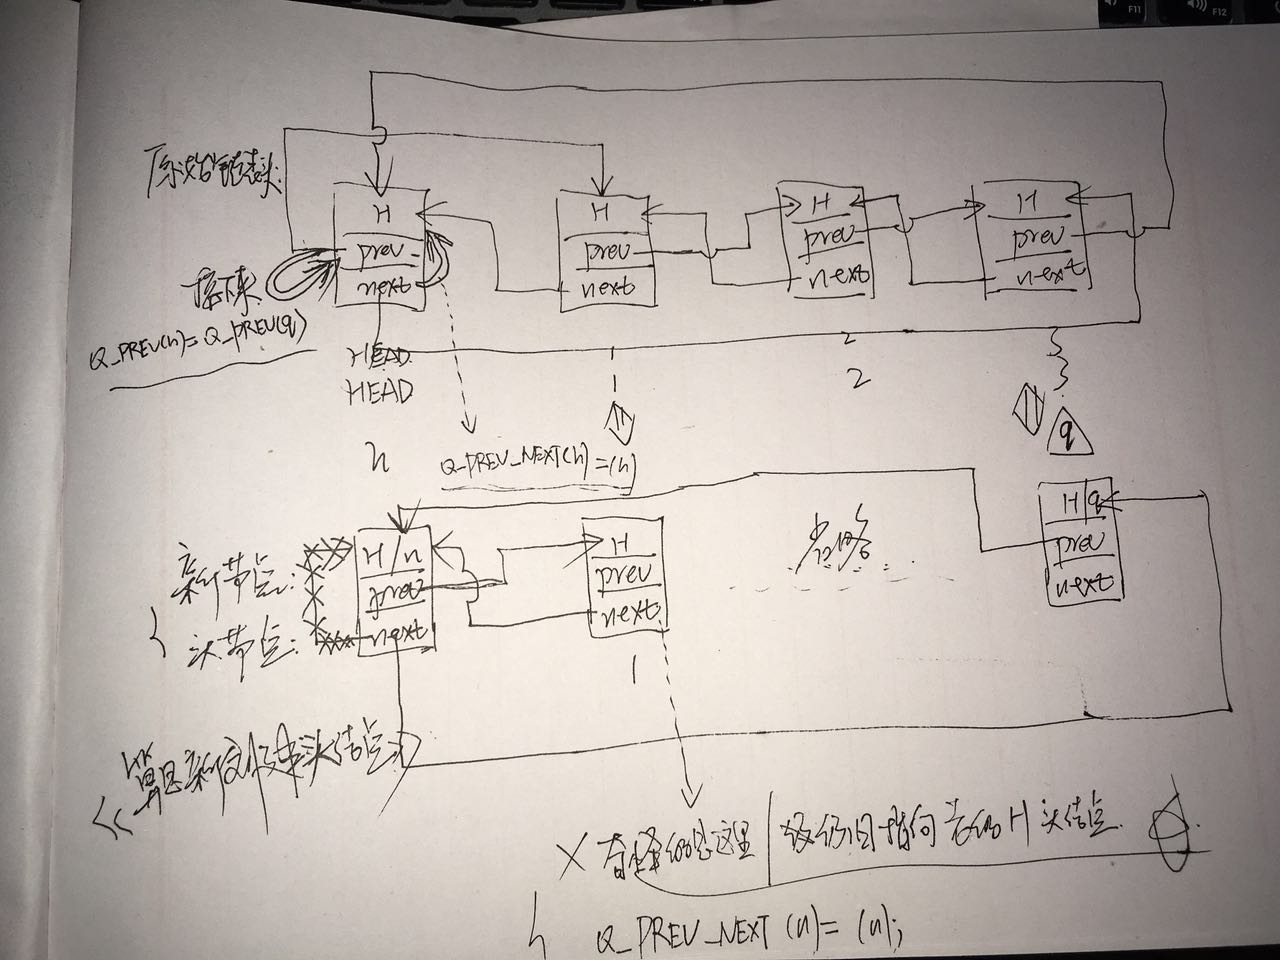 F11
F12
原始链表头
H
prev
next
H
prev
next
H
prev
next
H
prev
next
接下来
Q_PREV(h)=Q_PREV(q)
HEAD
HEAD
h
1
2
2
q
Q_PREV_NEXT(h)=(h)
新节点:
头节点:
H/n
prev
next
H
prev
next
1
省略
H|q
prev
next
<<算是新的链表头结点>>
X 奇怪的是这里
仍旧指向老的H头结点.
Q_PREV_NEXT(n)=(n);